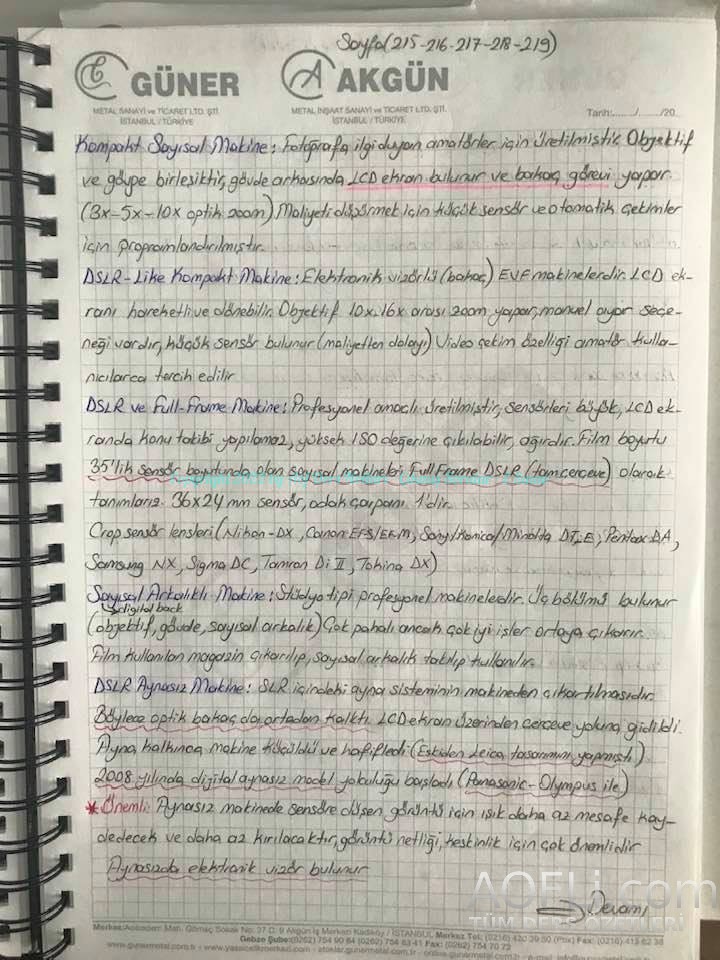 Sayfa (215-216-217-218-219)
GÜNER
AKGÜN
METAL SANAYİ ve TİCARET LTD. ŞTİ.
İSTANBUL / TÜRKİYE
METAL İNŞAAT SANAYİ ve TİCARET LTD. ŞTİ.
İSTANBUL / TÜRKİYE
Tarih:....../....../20
Kompakt Sayısal Makine: Fotoğrafa ilgi duyan amatörler için üretilmiştir. Objektif
ve gövde birleşiktir, gövde arkasında LCD ekran bulunur ve bakaç görevi yapar.
(3x-5x-10x optik zoom) Maliyeti düşürmek için küçük sensör ve otomatik çekimler
için programlandırılmıştır.
DSLR-Like Kompakt Makine: Elektronik vizörlü (bakaç) EVF makinelerdir. LCD ek-
ranı hareketli ve dönebilir. Objektif 10x-16x arası zoom yapar, manuel ayar seçe-
neği vardır, küçük sensör bulunur (maliyetten dolayı) Video çekim özelliği amatör kulla-
nıcılarca tercih edilir
DSLR ve Full-Frame Makine: Profesyonel amaçlı üretilmiştir, sensörleri büyük, LCD ek-
randa konu takibi yapılamaz, yüksek ISO değerine çıkılabilir, ağırdır. Film boyutu
35'lik sensör boyutunda olan sayısal makineleri Full Frame DSLR (tam çerçeve) olarak
tanımlarız. 36x24 mm sensör, odak çarpanı 1'dir.
Crop sensör lensleri (Nikon-DX, Canon EFS/EF-M, Sony/Konica/Minolta DT, E, Pentax DA,
Samsung NX, Sigma DC, Tamron Di II, Tokina DX)
Sayısal Arkalıklı Makine: Stüdyo tipi profesyonel makinelerdir. Üç bölümü bulunur
digital back
(objektif, gövde, sayısal arkalık) Çok pahalı ancak çok iyi işler ortaya çıkarır.
Film kullanılan magazin çıkarılıp, sayısal arkalık takılıp kullanılır.
DSLR Aynasız Makine: SLR içindeki ayna sisteminin makineden çıkartılmasıdır.
Böylece optik bakaç da ortadan kalktı. LCD ekran üzerinden çerçeve yoluna gidildi.
Ayna kalkınca makine küçüldü ve hafifledi (Eskiden Leica tasarımını yapmıştı)
2008 yılında digital aynasız model yolculuğu başladı (Panasonic-Olympus ile)
* Önemli: Aynasız makinede sensöre düşen görüntü için ışık daha az mesafe kay-
dedecek ve daha az kırılacaktır, görüntü netliği, keskinlik için çok önemlidir
Aynasızda elektronik vizör bulunur
Devamı
AOFLi.com
TÜM DERS ÖZETLERİ
Gebze Şube: